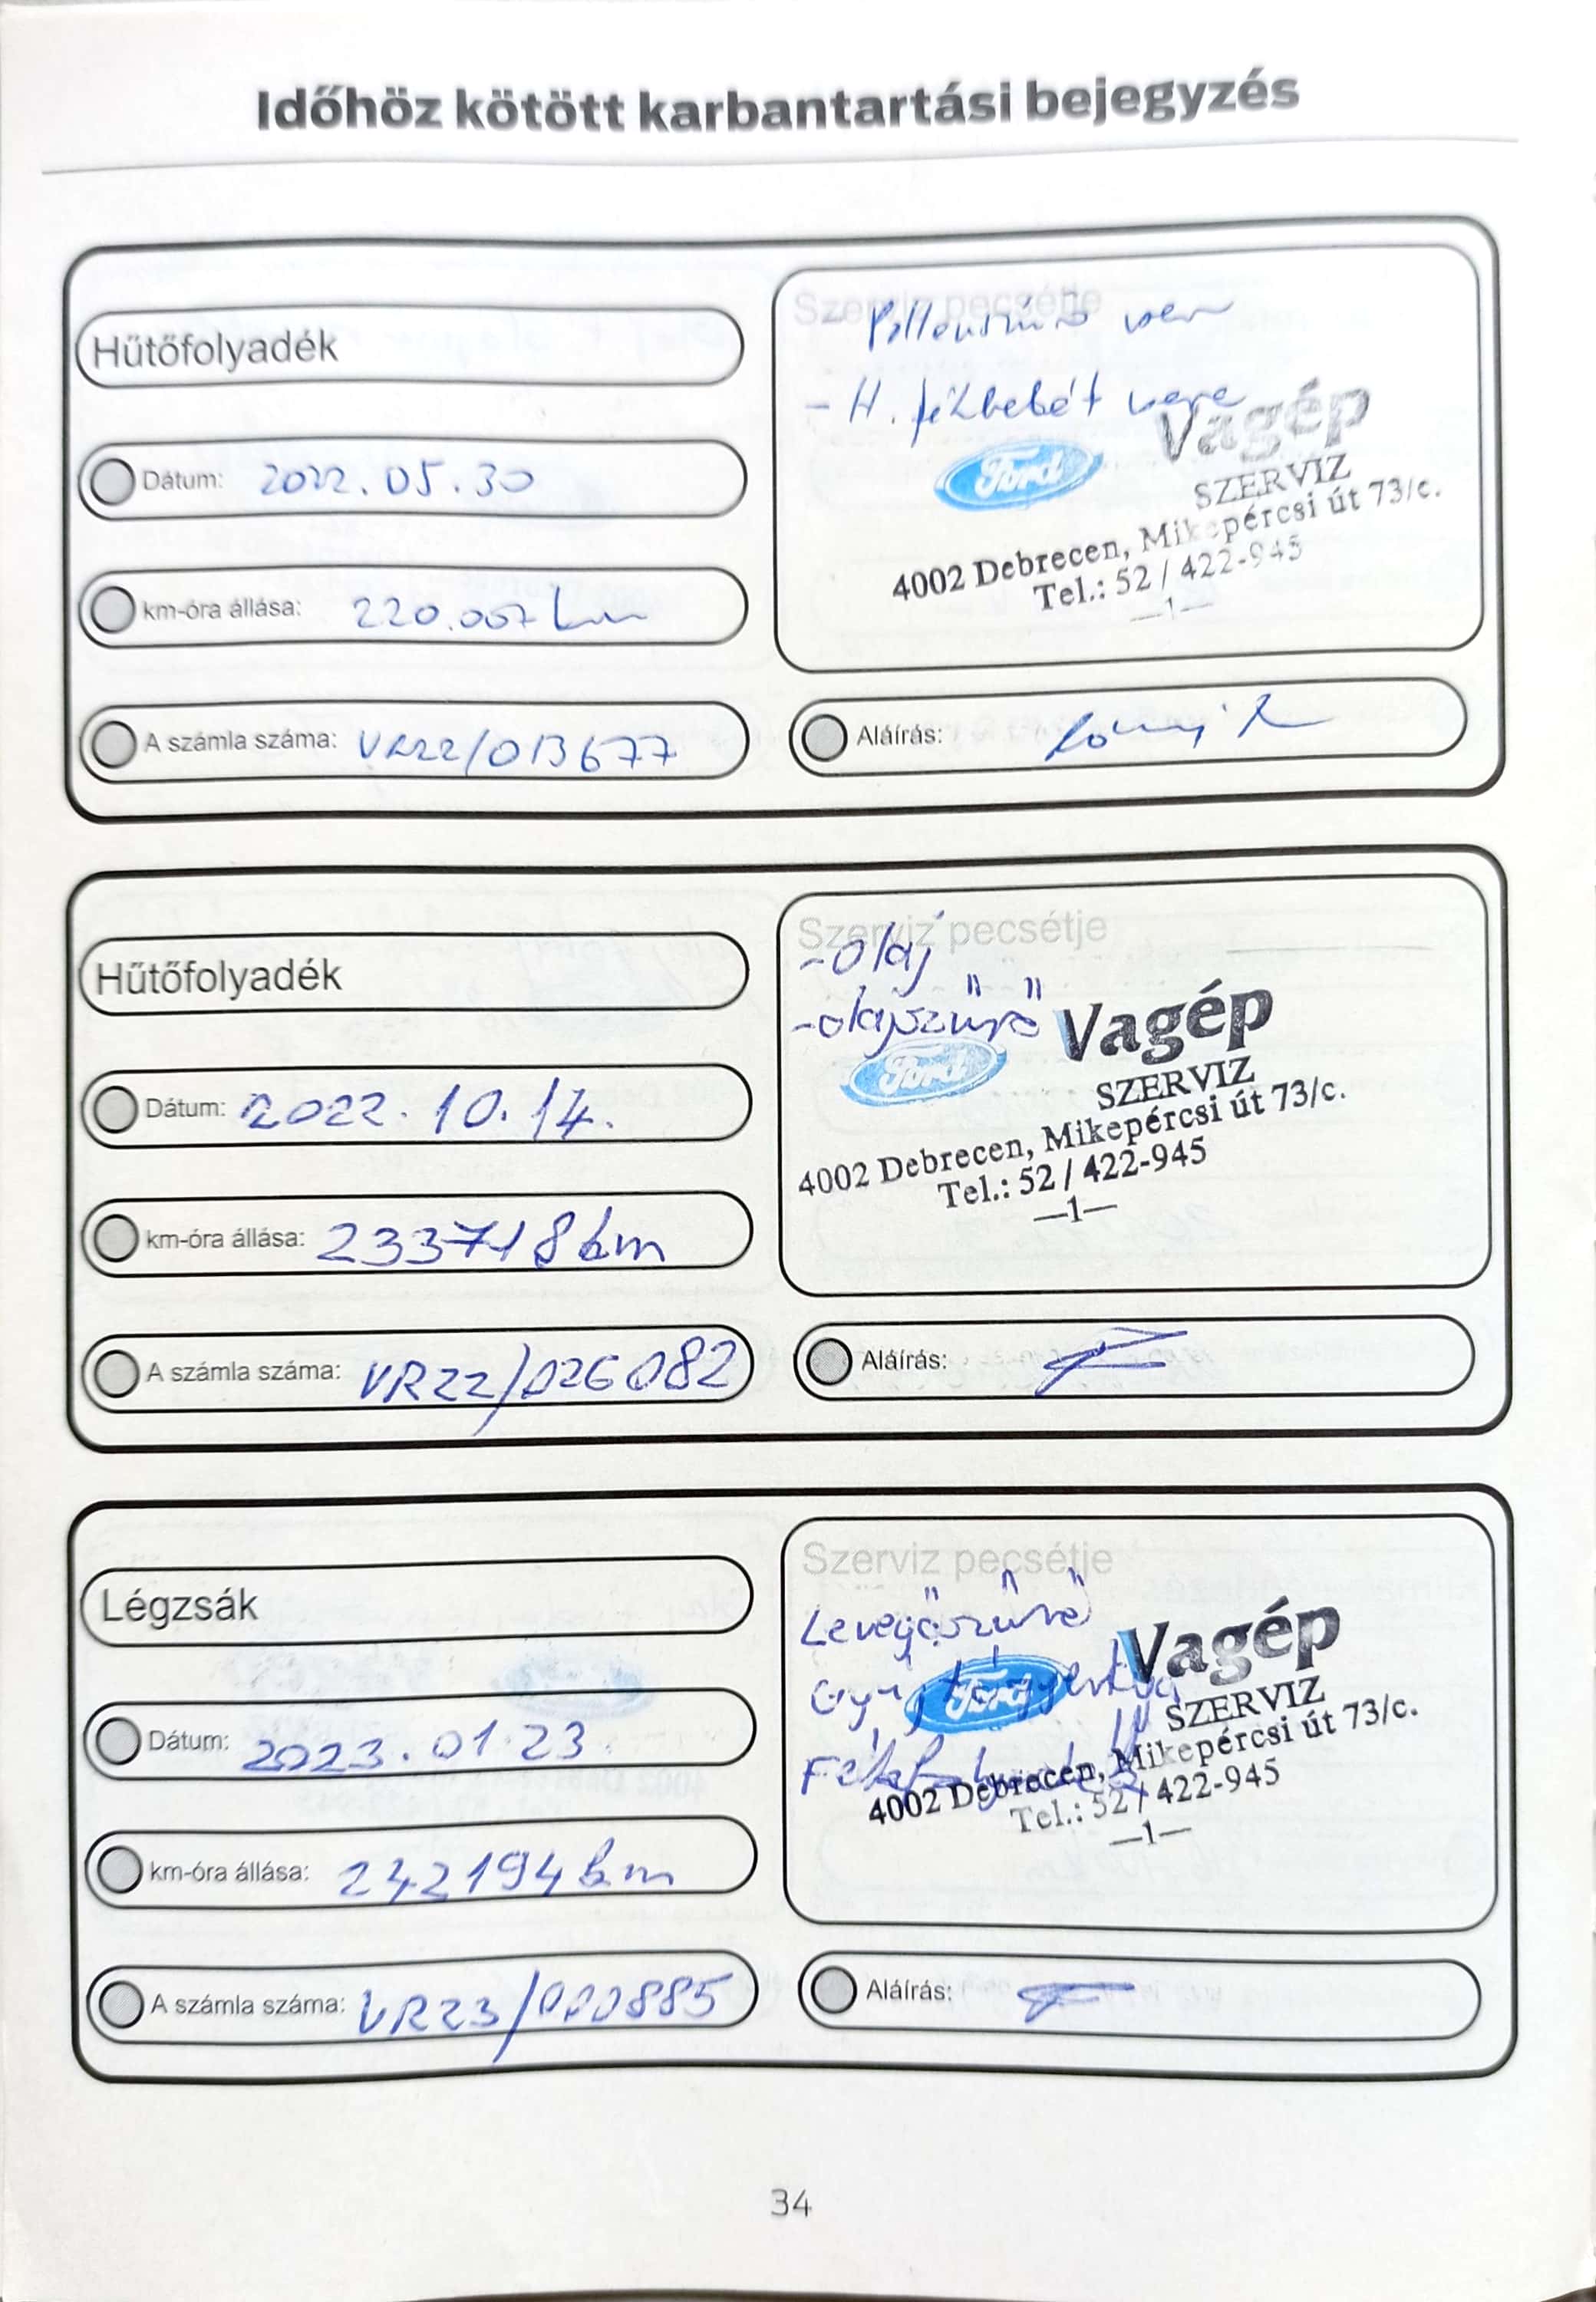 Időhöz kötött karbantartási bejegyzés
Hűtőfolyadék
Dátum: 2022.05.30
km-óra állása: 220.007 km
A számla száma: VR22/013677
Szerviz pecsétje
- Pollenszűrő
- H. fékbetét
Ford Vagép
SZERVIZ
4002 Debrecen, Mikepércsi út 73/c.
Tel.: 52 / 422-945
—1—
Aláírás:
Hűtőfolyadék
Dátum: 2022.10.14.
km-óra állása: 233718 km
A számla száma: VR22/026082
Szerviz pecsétje
- olaj
- olajszűrő
Ford Vagép
SZERVIZ
4002 Debrecen, Mikepércsi út 73/c.
Tel.: 52 / 422-945
—1—
Aláírás:
Légzsák
Dátum: 2023.01.23
km-óra állása: 242194 km
A számla száma: VR23/000885
Szerviz pecsétje
Levegőszűrő
Gyújtógyertya
Fékfolyadék
Ford Vagép
SZERVIZ
4002 Debrecen, Mikepércsi út 73/c.
Tel.: 52 / 422-945
—1—
Aláírás:
34